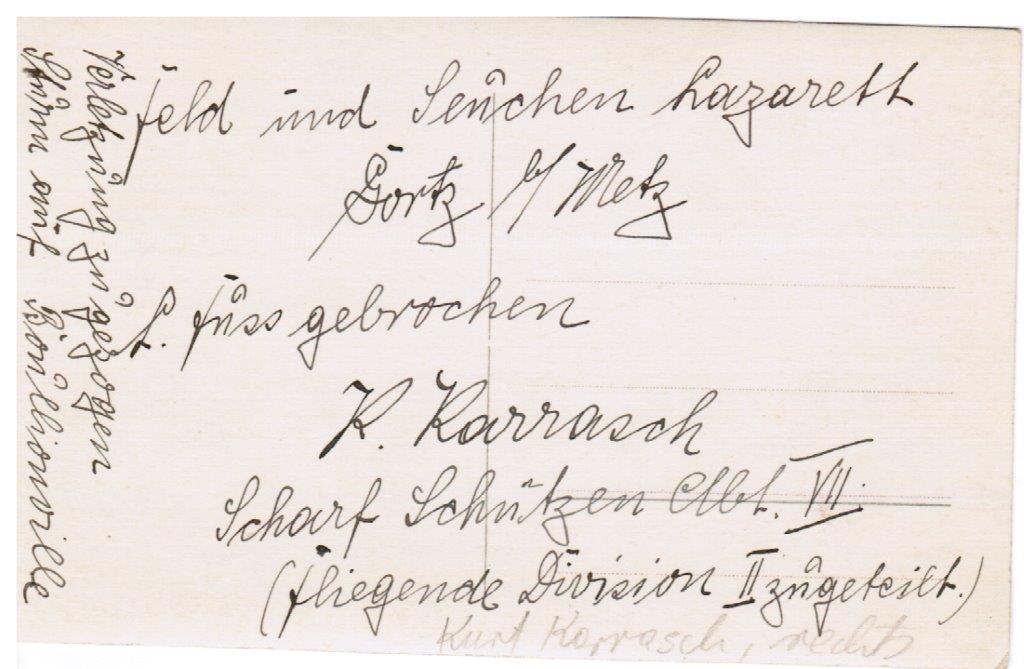 Feld und Seuchen Lazarett
Görtz b/ Metz
L. Fuss gebrochen
K. Karrasch
Scharf Schützen Abt. VII.
(fliegende Division II zugeteilt.)
Kurt Karrasch, rechts
Verletzung zugezogen
Sturm auf Bouillionville